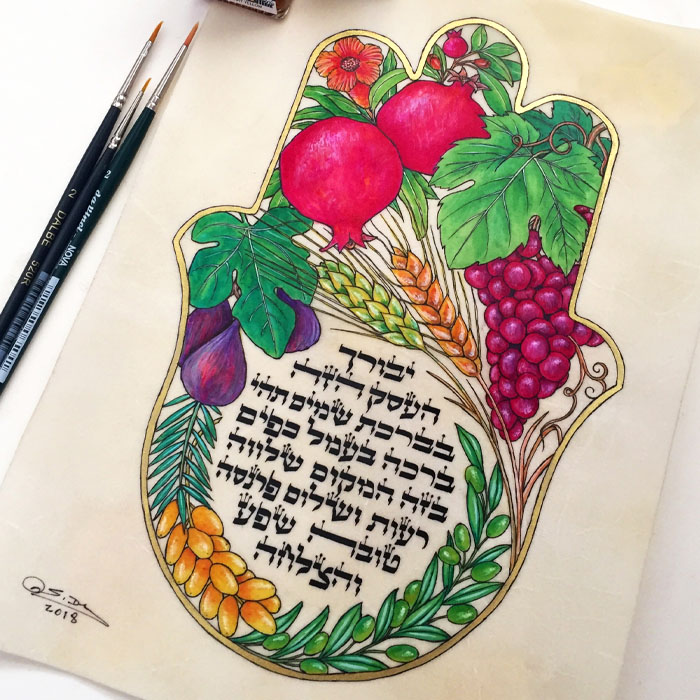 יבורך
העסק הזה
בברכת שמים תהי
ברכה בעמל כפים
בזה המקום שלווה
רעות ושלום פרנסה
טובה שפע
והצלחה
2018
2 DALBE 520R
da Vinci NOVA